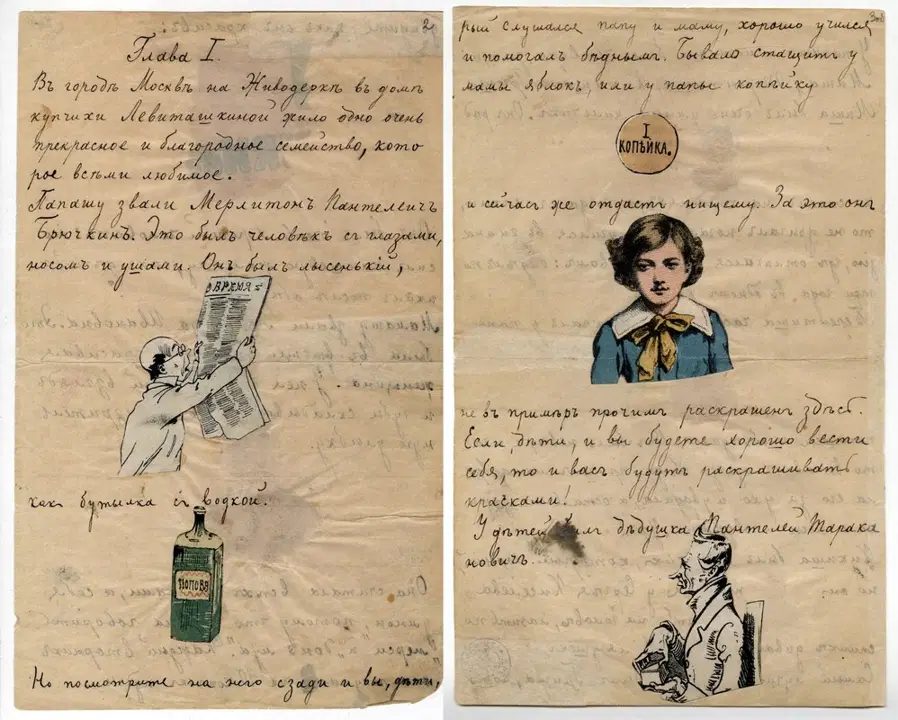 2
Глава I.
Въ городѣ Москвѣ на Живодеркѣ въ домѣ
купчихи Левиташкиной жило одно очень
прекрасное и благородное семейство, кото
рое всѣми любимое.
Папашу звали Мерлитонъ Пантелеичъ
Брючкинъ. Это былъ человѣкъ съ глазами,
носомъ и ушами. Онъ былъ лысенькій,
ВРЕМЯ
какъ бутылка съ водкой.
ПОПОВА
Но посмотрите на него сзади и вы, дѣти,
рый слушался папу и маму, хорошо учился
и помогалъ бѣднымъ. Бывало стащитъ у
мамы яблокъ или у папы копѣйку
I
КОПѢЙКА.
и сейчасъ же отдастъ нищему. За это онъ
не въ примѣръ прочимъ раскрашенъ здѣсь.
Если, дѣти, и вы будете хорошо вести
себя, то и васъ будутъ раскрашивать
красками!
У дѣтей былъ дѣдушка Пантелей Тарака
новичъ.